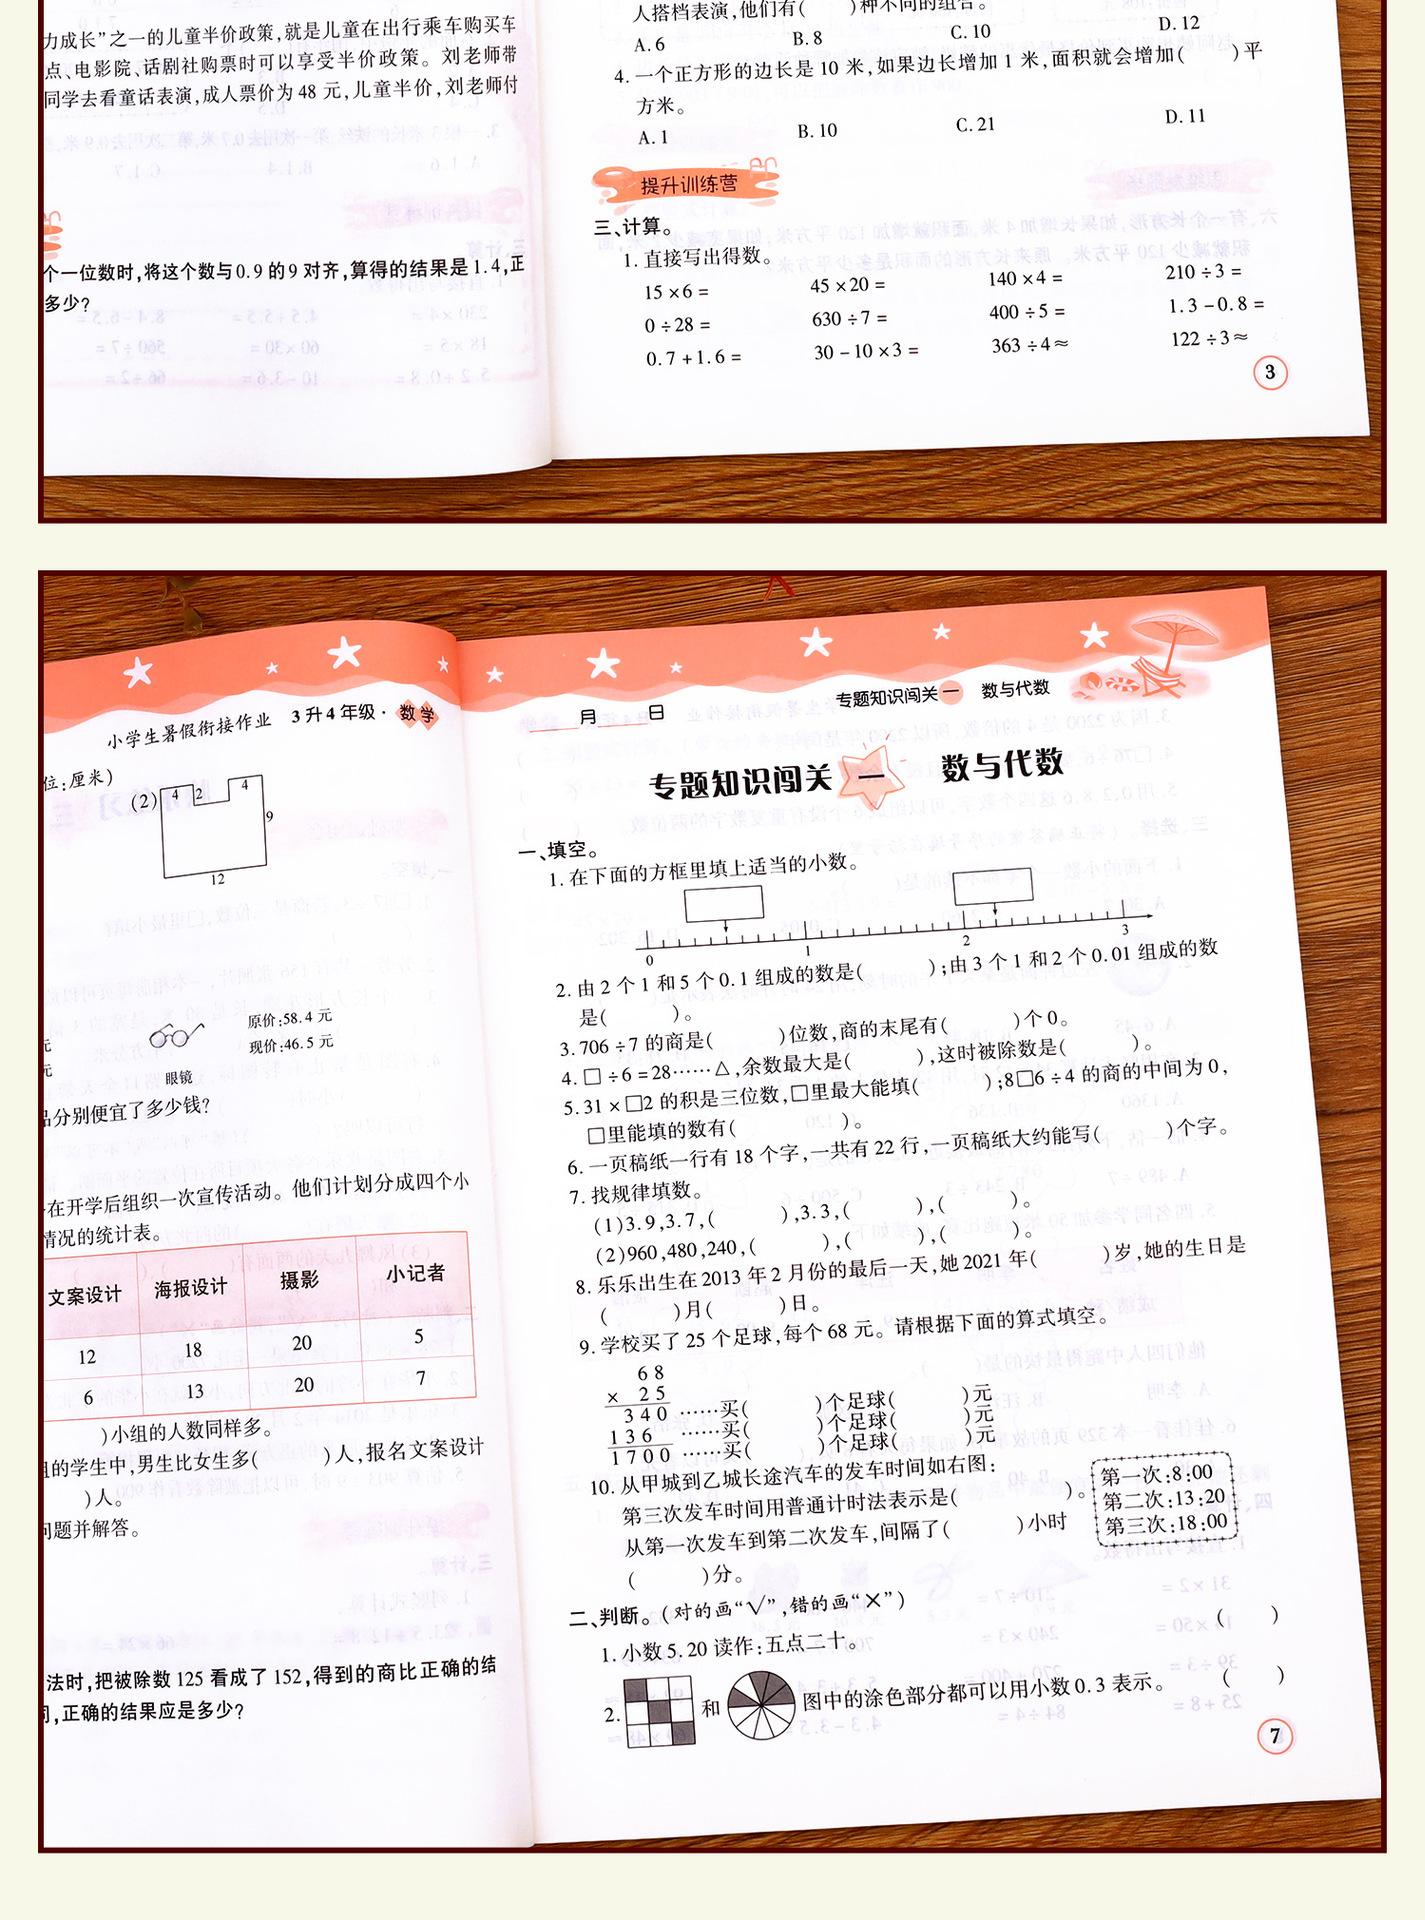 力成长”之一的儿童半价政策,就是儿童在出行乘车购买车
点、电影院、话剧社购票时可以享受半价政策。刘老师带
同学去看童话表演,成人票价为48元,儿童半价,刘老师付
个一位数时,将这个数与0.9的9对齐,算得的结果是1.4,正
多少?
人搭档表演,他们有(  )种不同的组合。
A.6 B.8 C.10 D.12
4.一个正方形的边长是10米,如果边长增加1米,面积就会增加(  )平
方米。
A.1 B.10 C.21 D.11
提升训练营
三、计算。
1.直接写出得数。
15×6= 45×20= 140×4= 210÷3=
0÷28= 630÷7= 400÷5= 1.3-0.8=
0.7+1.6= 30-10×3= 363÷4≈ 122÷3≈
3
小学生暑假衔接作业 3升4年级·数学
位:厘米)
(2) 4 2 4
9
12
原价:58.4元
现价:46.5元
元
元
眼镜
品分别便宜了多少钱?
在开学后组织一次宣传活动。他们计划分成四个小
情况的统计表。
文案设计 海报设计 摄影 小记者
12 18 20 5
6 13 20 7
)小组的人数同样多。
组的学生中,男生比女生多(  )人,报名文案设计
)人。
问题并解答。
法时,把被除数125看成了152,得到的商比正确的结
,正确的结果应是多少?
专题知识闯关一 数与代数
月 日
专题知识闯关 一 数与代数
一、填空。
1.在下面的方框里填上适当的小数。
0 1 2 3
2.由2个1和5个0.1组成的数是(  );由3个1和2个0.01组成的数
是(  )。
3.706÷7的商是(  )位数,商的末尾有(  )个0。
4.□÷6=28……△,余数最大是(  ),这时被除数是(  )。
5.31×□2的积是三位数,□里最大能填(  );8□6÷4的商的中间为0,
□里能填的数有(  )。
6.一页稿纸一行有18个字,一共有22行,一页稿纸大约能写(  )个字。
7.找规律填数。
(1)3.9,3.7,(  ),3.3,(  ),(  )。
(2)960,480,240,(  ),(  ),(  )。
8.乐乐出生在2013年2月份的最后一天,她2021年(  )岁,她的生日是
(  )月(  )日。
9.学校买了25个足球,每个68元。请根据下面的算式填空。
68
× 25
340 ……买(  )个足球(  )元
136 ……买(  )个足球(  )元
1700 ……买(  )个足球(  )元
10.从甲城到乙城长途汽车的发车时间如右图:
第三次发车时间用普通计时法表示是(  )。
从第一次发车到第二次发车,间隔了(  )小时
(  )分。
第一次:8:00
第二次:13:20
第三次:18:00
二、判断。(对的画“√”,错的画“×”)
1.小数5.20读作:五点二十。 (  )
2. 和 图中的涂色部分都可以用小数0.3表示。 (  )
7